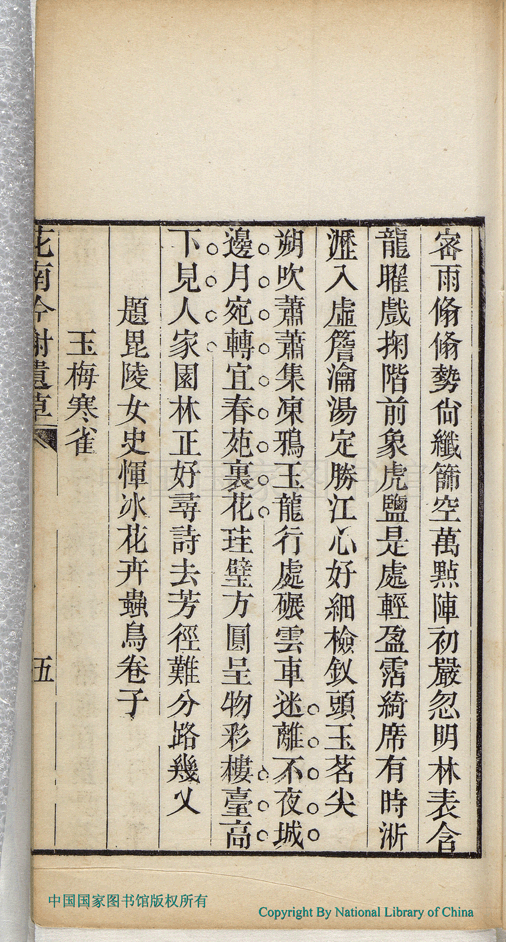 密雨翛翛勢尙纖篩空萬點陣初嚴忽明林表含
龍曜戲掬階前象虎鹽是處輕盈霑綺席有時淅
瀝入虛簷瀹湯定勝江心好細檢釵頭玉茗尖
朔吹蕭蕭集凍鴉玉龍行處碾雲車迷離不夜城
邊月宛轉宜春苑裏花珪璧方圓呈物彩樓臺高
下見人家園林正好尋詩去芳徑難分路幾乂
題毘陵女史惲冰花卉蟲鳥卷子
玉梅寒雀
花南吟榭遺草
五
中国国家图书馆版权所有
Copyright By National Library of China